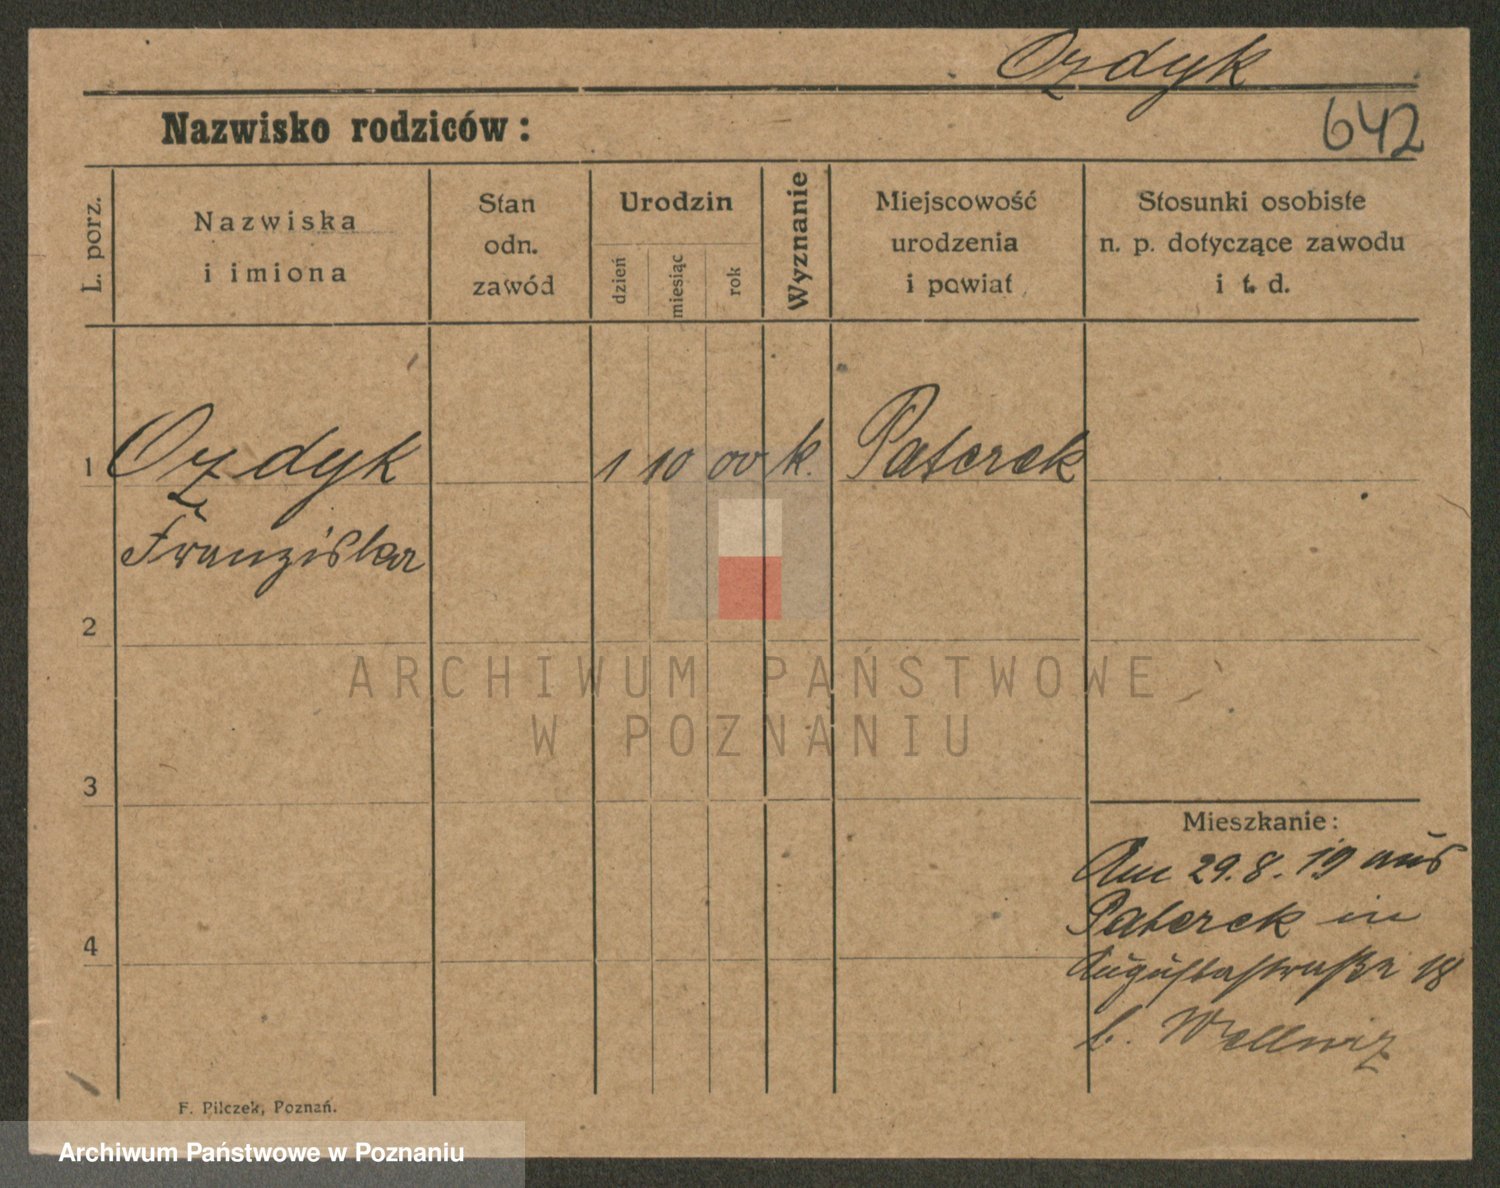 Ozdyk
Nazwisko rodziców:
642
L. porz.
Nazwiska
i imiona
Stan
odn.
zawód
Urodzin
dzień
miesiąc
rok
Wyznanie
Miejscowość
urodzenia
i powiat
Stosunki osobiste
n. p. dotyczące zawodu
i t. d.
1
Ozdyk
1 10 00 k. Paterek
Franziska
2
ARCHIWUM PAŃSTWOWE
W POZNANIU
3
Mieszkanie:
Am 29.8.19 aus
Paterek in
4
Augustastraße 18
b.
F. Pilczek, Poznań.
Archiwum Państwowe w Poznaniu